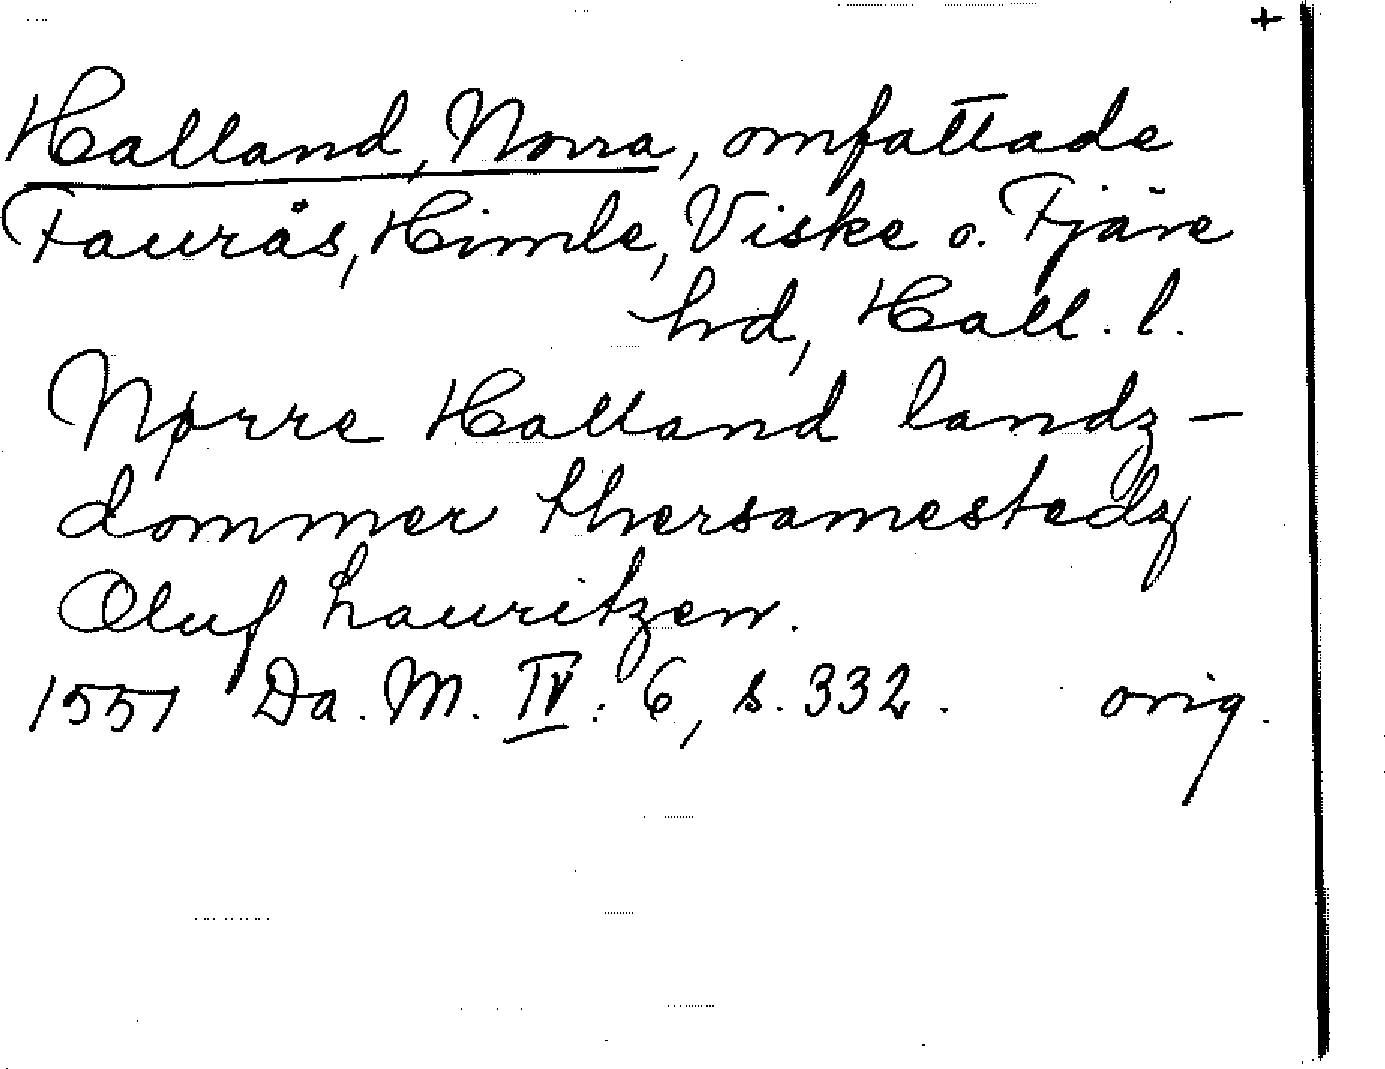 +
Halland, Norra, omfattade
Faurås, Himle, Viske o. Fjäre
hd, Hall. l.
Nørre Halland landz-
dommer thersamestedz
Oluf Lauritzen.
1557 Da. M. IV: 6, s. 332. orig.